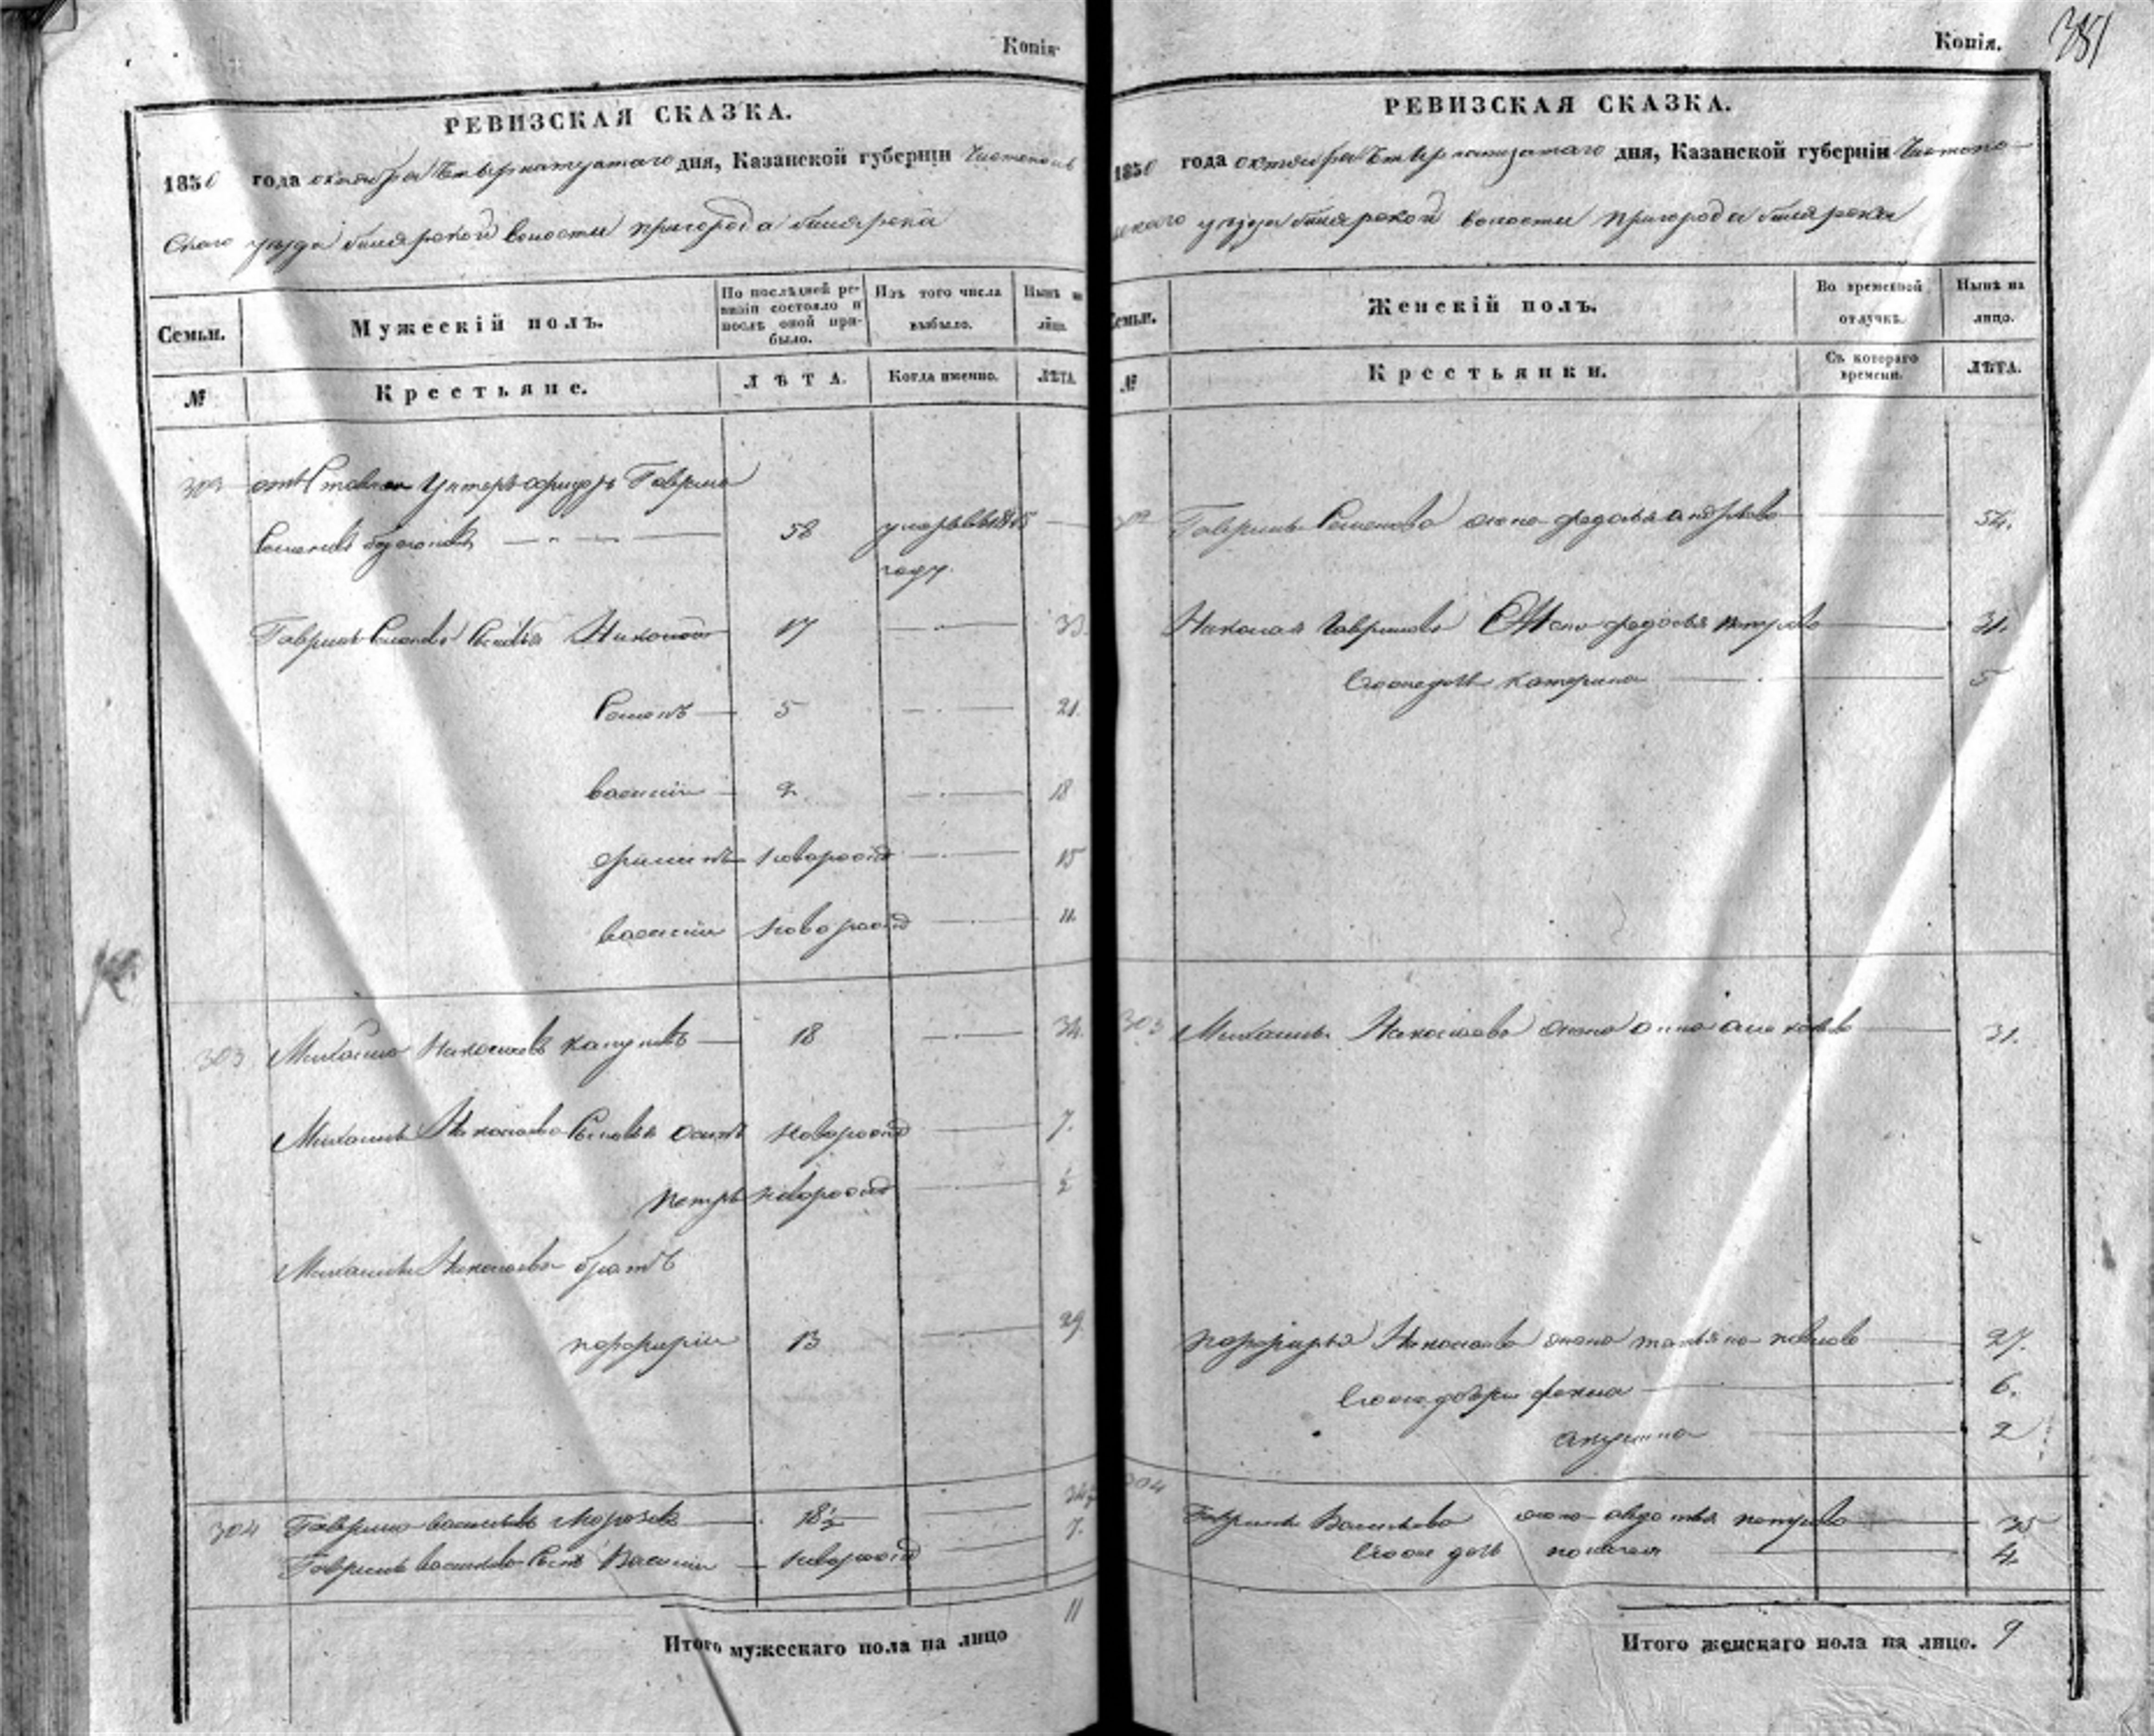 Копія
РЕВИЗСКАЯ СКАЗКА.
1850 года октября дня, Казанской губерніи Чистополь
скаго уезда билярской волости пригорода билярска
Семьи. Мужескій полъ. По послѣдней ревизіи состояло и послѣ оной прибыло. Изъ того числа выбыло. Нынѣ на лицо.
№ Крестьяне. ЛѢТА. Когда именно. ЛѢТА.
302 Унтеръ офицеръ Гаврила
Семеновъ 58 умеръ въ 1845
году.
Гаврилы Семенова Сыновья Николай 17 33
Семенъ 5 21.
василіи 2 18
филипъ новорожд 15
василіи новорожд 11.
303 Михаило Николаевъ 18 34.
Михаилы Николаева Сыновья осипъ новорожд 7.
петръ новорожд ½
Михаилы Николаева братъ
порфиріи 13 29
304 Гаврило васильевъ Морозовъ 18½ 34½
Гаврилы васильева Сынъ Василіи новорожд 7.
Итого мужескаго пола на лицо 11
Копія. 381
РЕВИЗСКАЯ СКАЗКА.
1850 года октября дня, Казанской губерніи Чистопо
льскаго уезда билярской волости пригорода билярска
Семьи. Женскій полъ. Во временной отлучкѣ. Нынѣ на лицо.
№ Крестьянки. Съ котораго времени. ЛѢТА.
302 Гаврилы Семенова жена федосья андреева 54.
Николая Гаврилова Жена федосья петрова 31.
Егоже дочь катерина 5
303 Михаилы Николаева жена анна 31.
порфирья Николаева жена татьяна павлова 27.
Егоже дочери фекла 6.
акулина 2
304 Гаврилы Васильева жена авдотья петрова 35
Егоже дочь 4.
Итого женскаго пола на лицо. 9